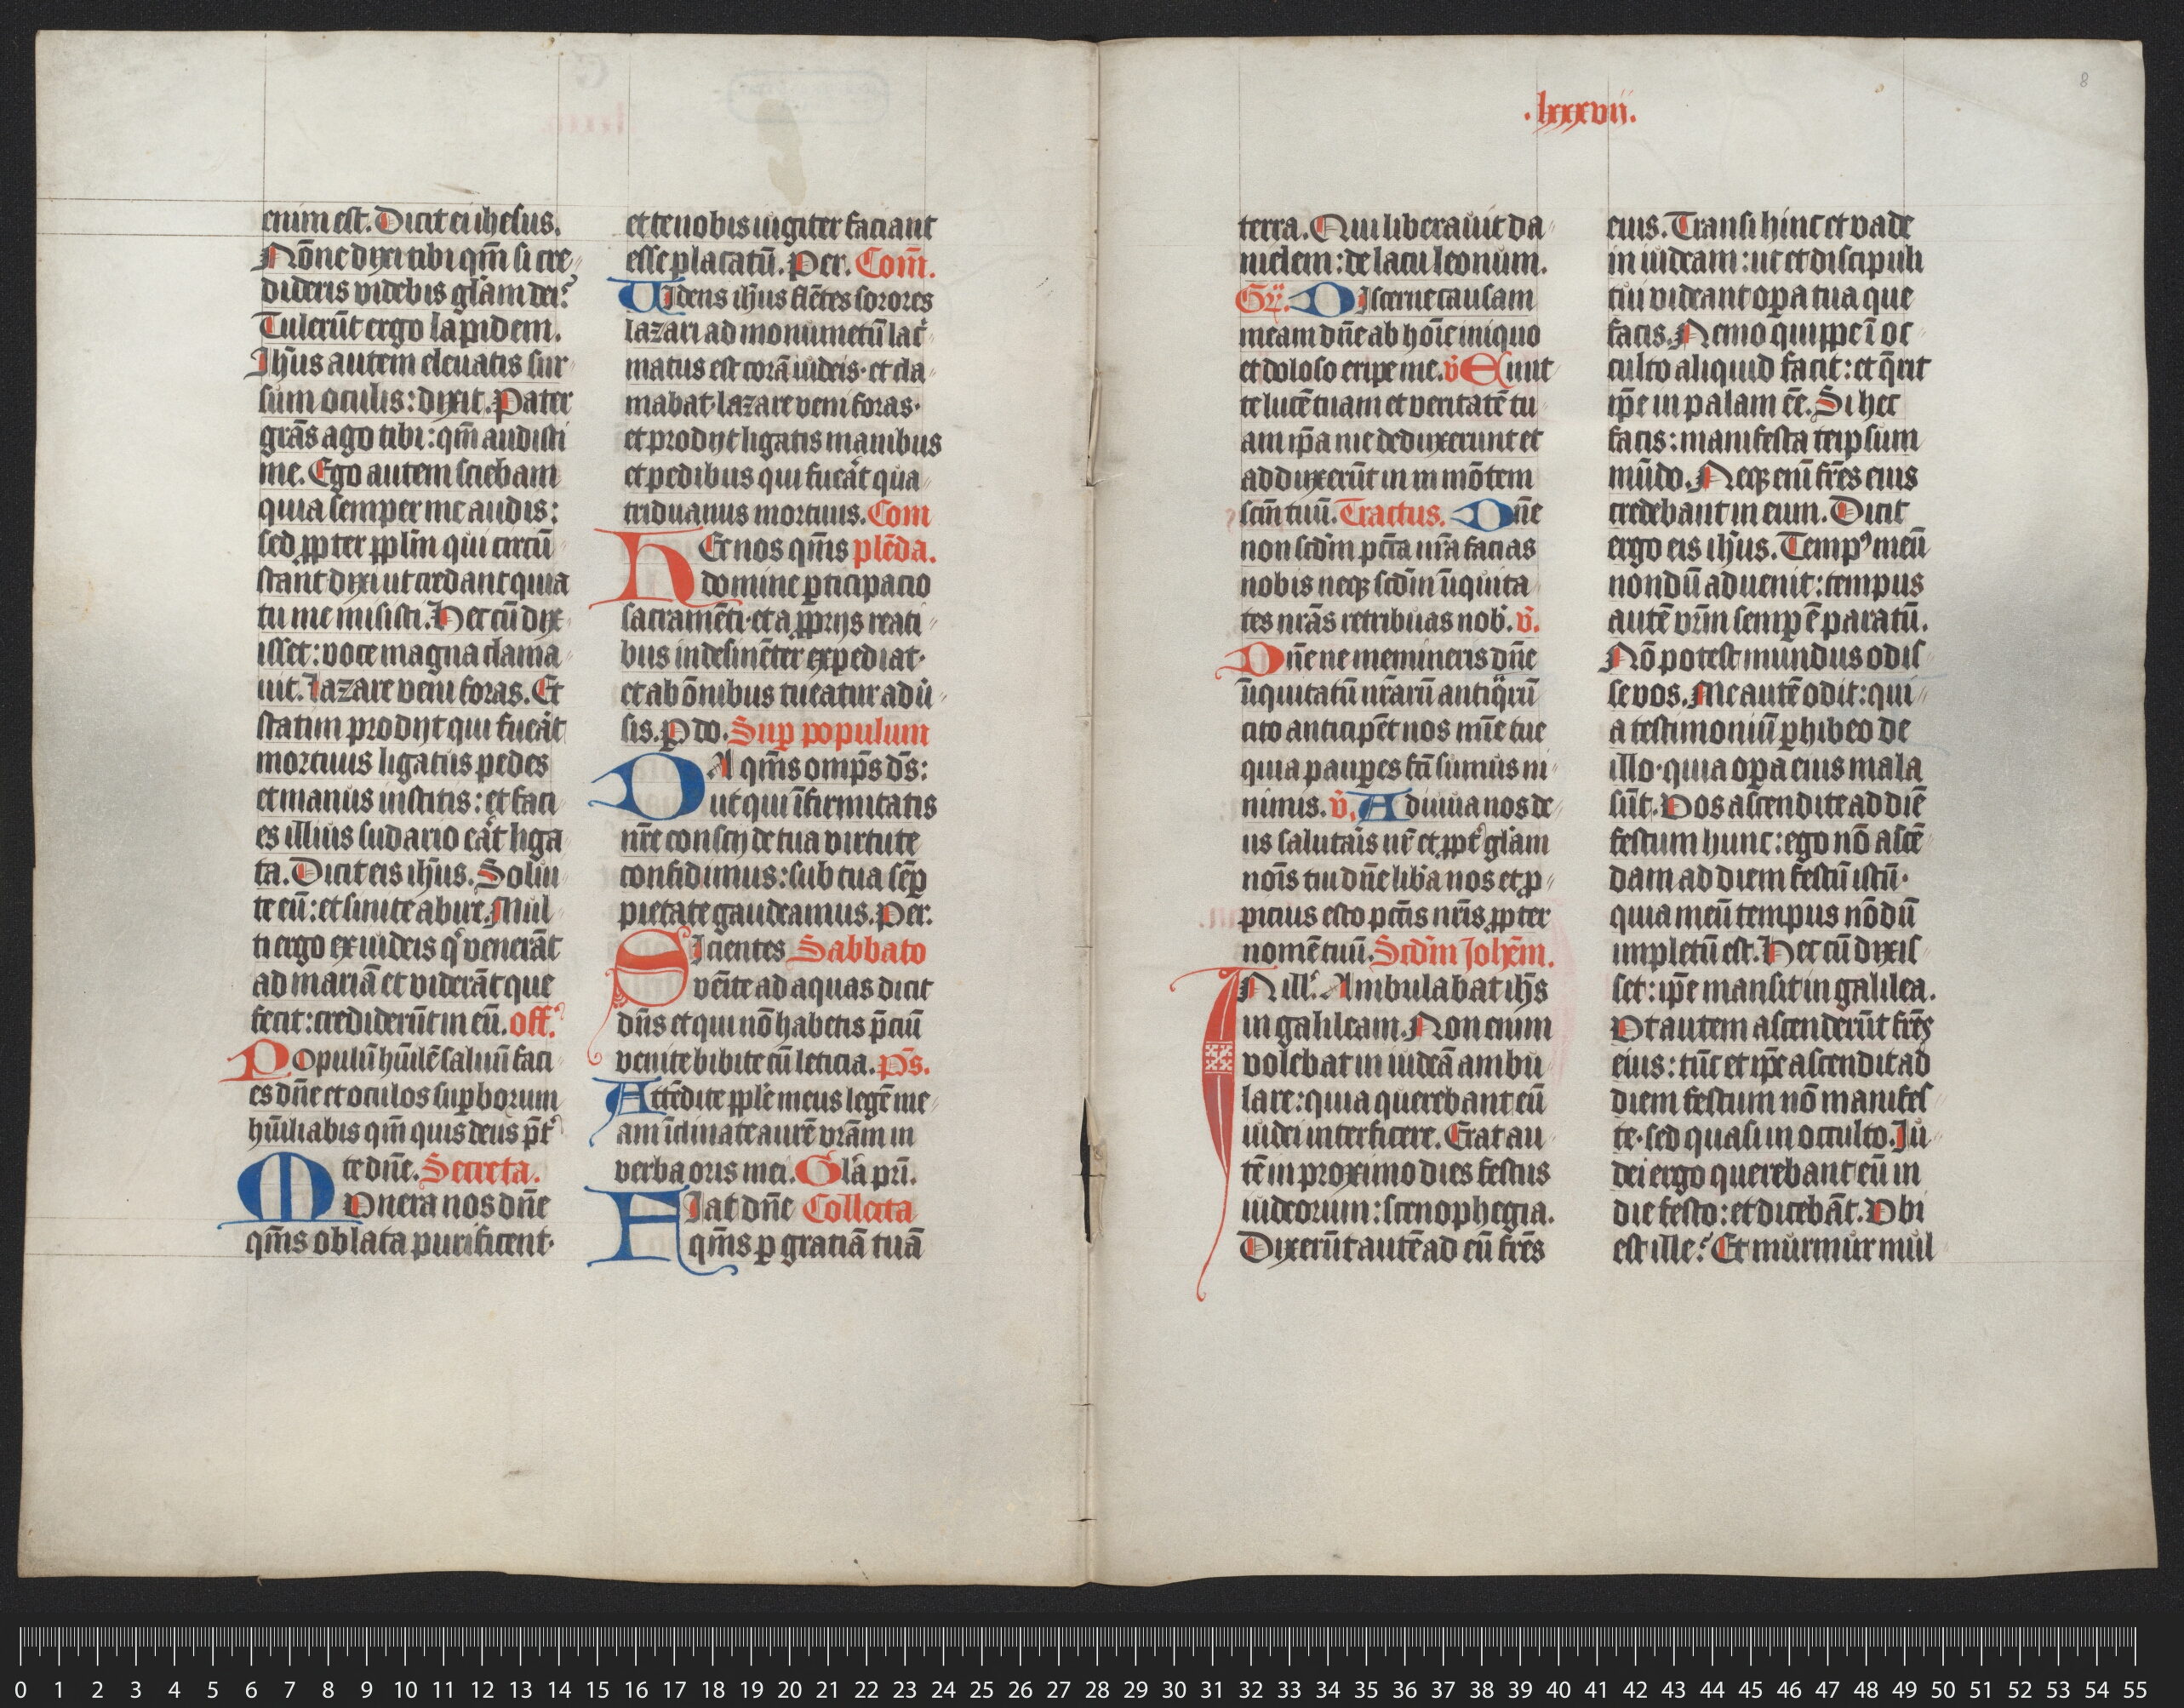 enim est. Dicit ei ihesus.
Nōne dixi tibi qm̄ si cre
dideris videbis glām dei?
Tulerūt ergo lapidem.
Jhūs autem eleuatis sur
sum oculis: dixit. Pater
grās ago tibi: qm̄ audisti
me. Ego autem sciebam
quia semper me audis:
sed ꝓpter ꝓplm̄ qui circū
stant dixi ut credant quia
tu me misisti. Hec cū dix
isset: voce magna clama
uit. Lazare veni foras. Et
statim prodijt qui fuēat
mortuus ligatus pedes
et manus institis: et faci
es illius sudario eāt liga
ta. Dicit eis ihūs. Solui
te eū: et sinite abire. Mul
ti ergo ex iudeis qͥ venerāt
ad mariā et viderāt que
fecit: crediderūt in eū. off.
Populū hūilē saluū faci
es dn̄e et oculos suꝑborum
hūiliabis qm̄ quis deus p̄t
te dn̄e. Secreta.
Munera nos dn̄e
qm̄s oblata purificent.
et te nobis iugiter faciant
esse placatū. Per. Com̄.
Videns ihūs flētes sorores
lazari ad monumētū lac̄
matus est corā iudeis. et cla
mabat. lazare veni foras.
et prodijt ligatis manibus
et pedibus qui fuēat qua
triduanus mortuus. Com
Hec nos qm̄s plēda.
domine ꝑticipacio
sacramēti. et a ꝓprijs reati
bus indesinēter expediat.
et ab ōnibus tueatur adū
sis. P do. Suꝑ populum
Da qm̄s omp̄s ds̄:
ut qui īfirmitatis
nr̄e conscij de tua virtute
confidimus: sub tua sēꝑ
pietate gaudeamus. Per.
Sicientes Sabbato
venite ad aquas dicit
dn̄s et qui nō habetis p̄ciū
venite bibite cū leticia. ps̄.
Attēdite ꝓplē meus legē me
am īclinate aurē vrām in
verba oris mei. Glā pri.
Fiat dn̄e Collecta
qm̄s ꝑ gratiā tuā
.lxxxvij.
8
terra. Qui liberauit da
nielem: de lacu leonum.
Gr. Discerne causam
meam dn̄e ab hoīe iniquo
et doloso eripe me. v̄ Emit
te lucē tuam et veritatē tu
am ip̄a me deduxerunt et
adduxerūt in m mōtem
scm̄ tuū. Tractus. Dn̄e
non scdm̄ pctā nrā facias
nobis neqꝫ scdm̄ iniquita
tes nrās retribuas nob. v̄.
Dn̄e ne memineris dn̄e
iniquitatū nrārū antiqrū
cito anticipēt nos mīe tue
quia pauꝑes fcī sumus ni
nimis. v̄. Adiuua nos de
us salutaīs nr̄ et ꝓpt glām
noīs tui dn̄e libā nos et ꝓ
picius esto pctīs nrīs ꝓpter
nomē tuū. Scdm̄ Johēm.
In ill. Ambulabat ihs̄
in galileam. Non enim
volebat in iudeā ambu
lare: quia querebant eū
iudei interficere. Erat au
tē in proximo dies festus
iudeorum: scenophegia.
Dixerūt autē ad eū frēs
eius. Transi hinc et vade
in iudeam: ut et discipuli
tui videant oꝑa tua que
facis. Nemo quippe ī oc
culto aliquid facit: et qr̄it
ip̄e in palam ēē. Si hec
facis: manifesta teipsum
mūdo. Neqꝫ enī frēs eius
credebant in eum. Dicit
ergo eis ihūs. Tempꝰ meū
nondū aduenit: tempus
autē vrm̄ semꝑ ē paratū.
Nō potest mundus odis
se vos. Me autē odit: qui
a testimoniū ꝑhibeo de
illo. quia oꝑa eius mala
sūt. Vos ascendite ad diē
festum hunc: ego nō ascē
dam ad diem festū istū.
quia meū tempus nōdū
impletū est. Hec cū dixis
set: ip̄e mansit in galilea.
Vt autem ascenderūt frēs
eius: tūc et ip̄e ascendit ad
diem festum nō manifes
te. sed quasi in occulto. Ju
dei ergo querebant eū in
die festo: et dicebāt. Vbi
est ille? Et murmur mul
0 1 2 3 4 5 6 7 8 9 10 11 12 13 14 15 16 17 18 19 20 21 22 23 24 25 26 27 28 29 30 31 32 33 34 35 36 37 38 39 40 41 42 43 44 45 46 47 48 49 50 51 52 53 54 55